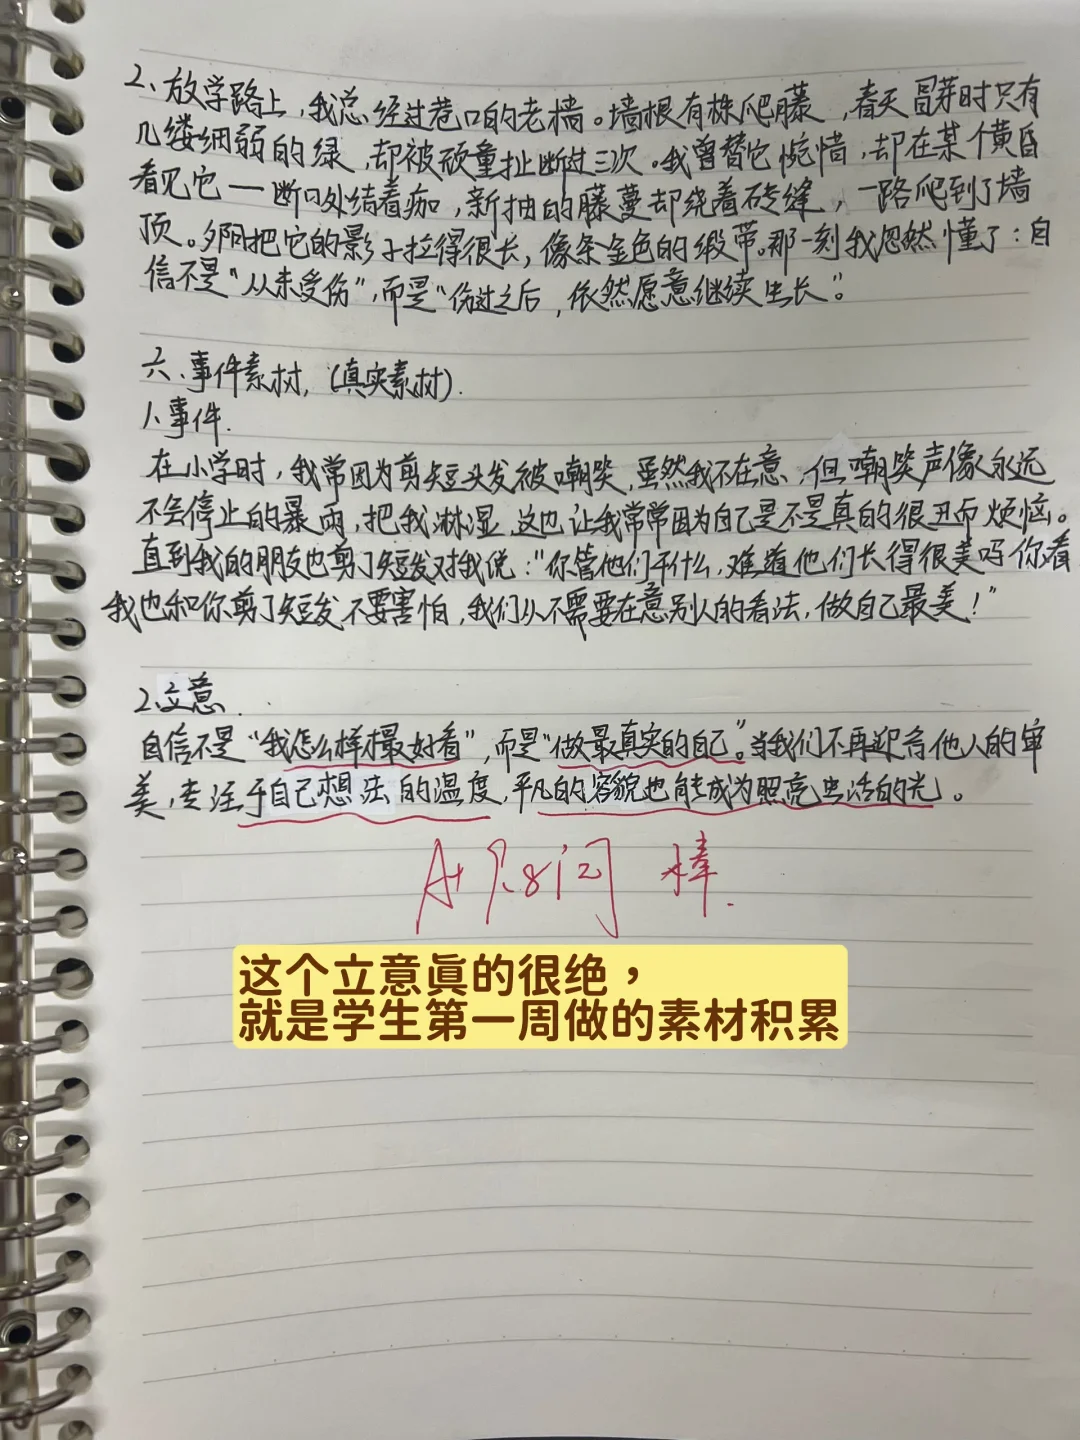 2、放学路上，我总经过巷口的老墙。墙根有株爬藤，春天冒芽时只有
几缕细弱的绿，却被顽童扯断过三次。我曾替它惋惜，却在某个黄昏
看见它一断口处结着痂，新抽的藤蔓却绕着砖缝，一路爬到了墙
顶。夕阳把它的影子拉得很长，像条金色的缎带。那一刻我忽然懂了：自
信不是“从未受伤”，而是“伤过之后，依然愿意继续生长”。
六、事件素材，（真实素材）.
1、事件.
在小学时，我常因为剪短头发被嘲笑，虽然我不在意，但嘲笑声像永远
不会停止的暴雨，把我淋湿，这也让我常常因为自己是不是真的很丑而烦恼。
直到我的朋友也剪了短发对我说：“你管他们干什么，难道他们长得很美吗你看
我也和你剪了短发不要害怕，我们从不需要在意别人的看法，做自己最美！”
2、立意.
自信不是“我怎么样才最好看”，而是“做最真实的自己”。当我们不再迎合他人的审
美，专注于自己想法的温度，平凡的容貌也能成为照亮生活的光。
A+ 棒.
这个立意真的很绝，
就是学生第一周做的素材积累